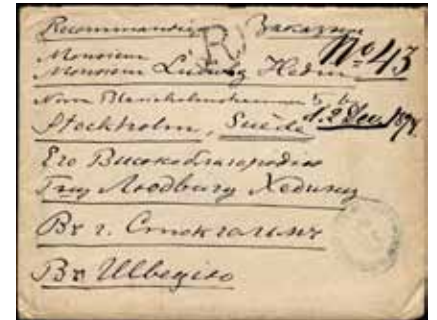 Recommandée Заказное
R
№ 43
Monsieur
Monsieur Ludwig Hedin
Norra
Stockholm, Suède d. 2 Dec. 1878.
Его Высокоблагородію
Гну Людвигу Хедину
Въ г. Стокгольмъ
Въ Швецію